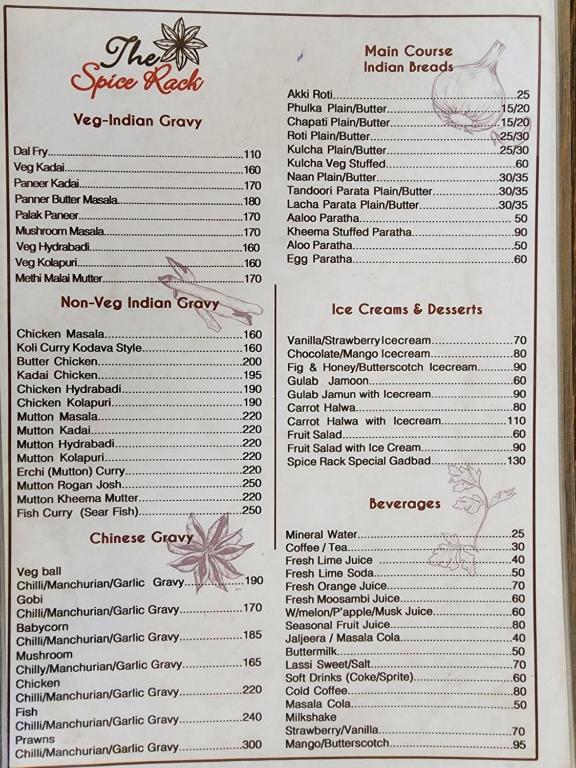 The
Spice Rack
Veg-Indian Gravy
Dal Fry..........110
Veg Kadai..........160
Paneer Kadai..........170
Panner Butter Masala..........180
Palak Paneer..........170
Mushroom Masala..........170
Veg Hydrabadi..........160
Veg Kolapuri..........160
Methi Malai Mutter..........170
Non-Veg Indian Gravy
Chicken Masala..........160
Koli Curry Kodava Style..........160
Butter Chicken..........200
Kadai Chicken..........195
Chicken Hydrabadi..........190
Chicken Kolapuri..........190
Mutton Masala..........220
Mutton Kadai..........220
Mutton Hydrabadi..........220
Mutton Kolapuri..........220
Erchi (Mutton) Curry..........220
Mutton Rogan Josh..........250
Mutton Kheema Mutter..........220
Fish Curry (Sear Fish)..........250
Chinese Gravy
Veg ball
Chilli/Manchurian/Garlic Gravy..........190
Gobi
Chilli/Manchurian/Garlic Gravy..........170
Babycorn
Chilli/Manchurian/Garlic Gravy..........185
Mushroom
Chilly/Manchurian/Garlic Gravy..........165
Chicken
Chilli/Manchurian/Garlic Gravy..........220
Fish
Chilli/Manchurian/Garlic Gravy..........240
Prawns
Chilli/Manchurian/Garlic Gravy..........300
Main Course
Indian Breads
Akki Roti..........25
Phulka Plain/Butter..........15/20
Chapati Plain/Butter..........15/20
Roti Plain/Butter..........25/30
Kulcha Plain/Butter..........25/30
Kulcha Veg Stuffed..........60
Naan Plain/Butter..........30/35
Tandoori Parata Plain/Butter..........30/35
Lacha Parata Plain/Butter..........30/35
Aaloo Paratha..........50
Kheema Stuffed Paratha..........90
Aloo Paratha..........50
Egg Paratha..........60
Ice Creams & Desserts
Vanilla/Strawberry Icecream..........70
Chocolate/Mango Icecream..........80
Fig & Honey/Butterscotch Icecream..........90
Gulab Jamoon..........60
Gulab Jamun with Icecream..........90
Carrot Halwa..........80
Carrot Halwa with Icecream..........110
Fruit Salad..........60
Fruit Salad with Ice Cream..........90
Spice Rack Special Gadbad..........130
Beverages
Mineral Water..........25
Coffee / Tea..........30
Fresh Lime Juice..........40
Fresh Lime Soda..........50
Fresh Orange Juice..........70
Fresh Moosambi Juice..........60
W/melon/P'apple/Musk Juice..........60
Seasonal Fruit Juice..........80
Jaljeera / Masala Cola..........40
Buttermilk..........50
Lassi Sweet/Salt..........70
Soft Drinks (Coke/Sprite)..........60
Cold Coffee..........80
Masala Cola..........50
Milkshake
Strawberry/Vanilla..........70
Mango/Butterscotch..........95